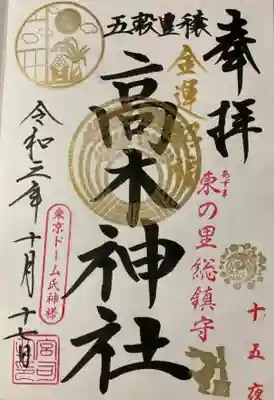 奉拝
十五夜
あずま
東の里総鎮守
五穀豊穣
金運
高木神社
東京ドーム氏神様
令和三年十月十七日
宮司